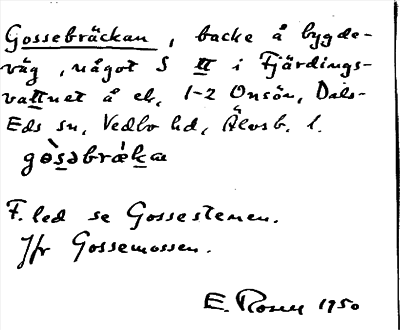 Gossebräckan, backe å bygde-
väg, något S tt i Fjärdings-
vattnet å ek. 1-2 Onsön, Dals-
Eds sn, Vedbo hd, Älvsb. l.
F. led se Gossestenen.
Jfr Gossemossen.
E. Rosen 1950